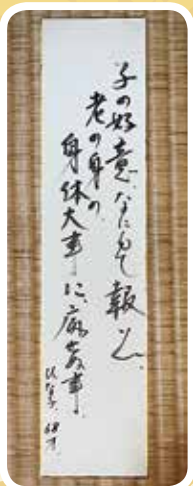 子の好意なにもて報ん
老の身の
身体大事に、病無事
68才